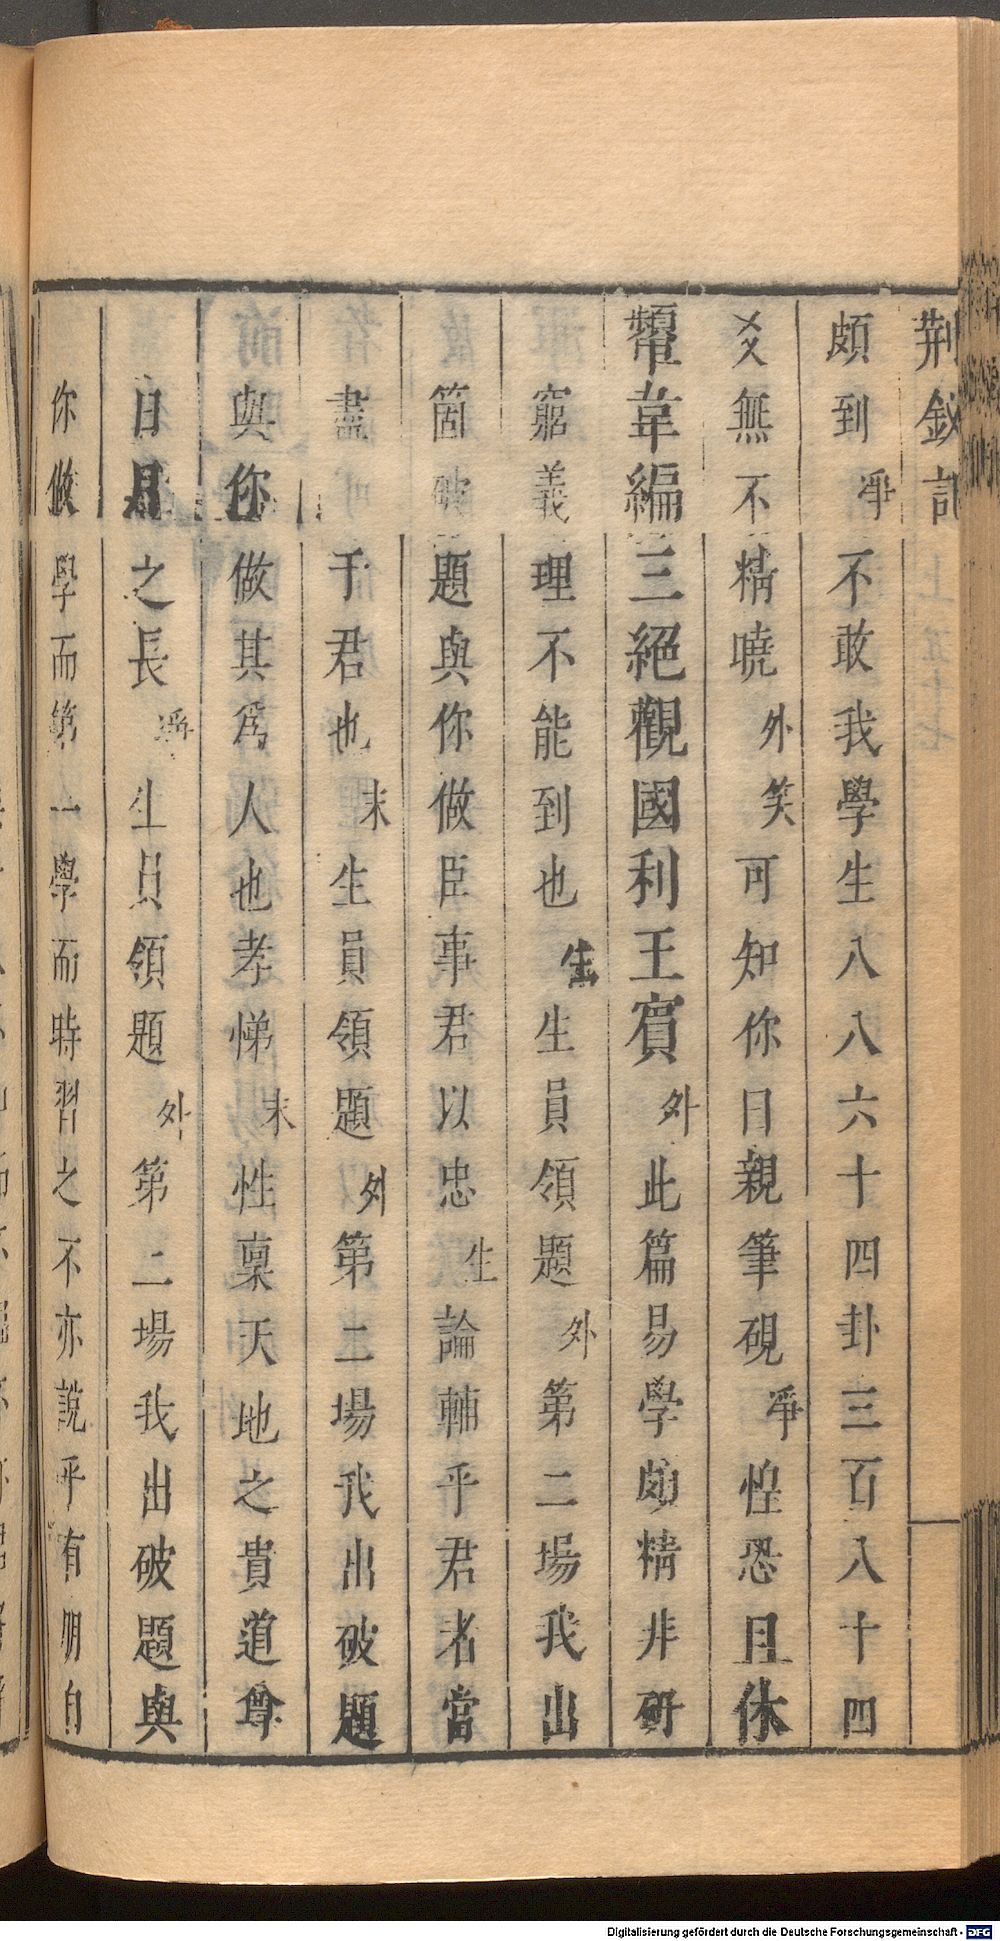 荆釵記
頗到 淨 不敢我學生八八六十四卦三百八十四
爻無不精曉 外 笑 可知你日親筆硯 淨 惶恐且休
韋編三絕觀國利王賓 外 此篇易學頗精非研
窮義理不能到也 生 生員領題 外 第二場我出
箇破題與你做臣事君以忠 生 論輔乎君者當
盡于君也 末 生員領題 外 第二場我出破題
與你做其爲人也孝悌 末 性稟天地之貴道尊
日月之長 淨 生員領題 外 第二場我出破題與
你做學而第一學而時習之不亦説乎有朋自
Digitalisierung gefördert durch die Deutsche Forschungsgemeinschaft - DFG